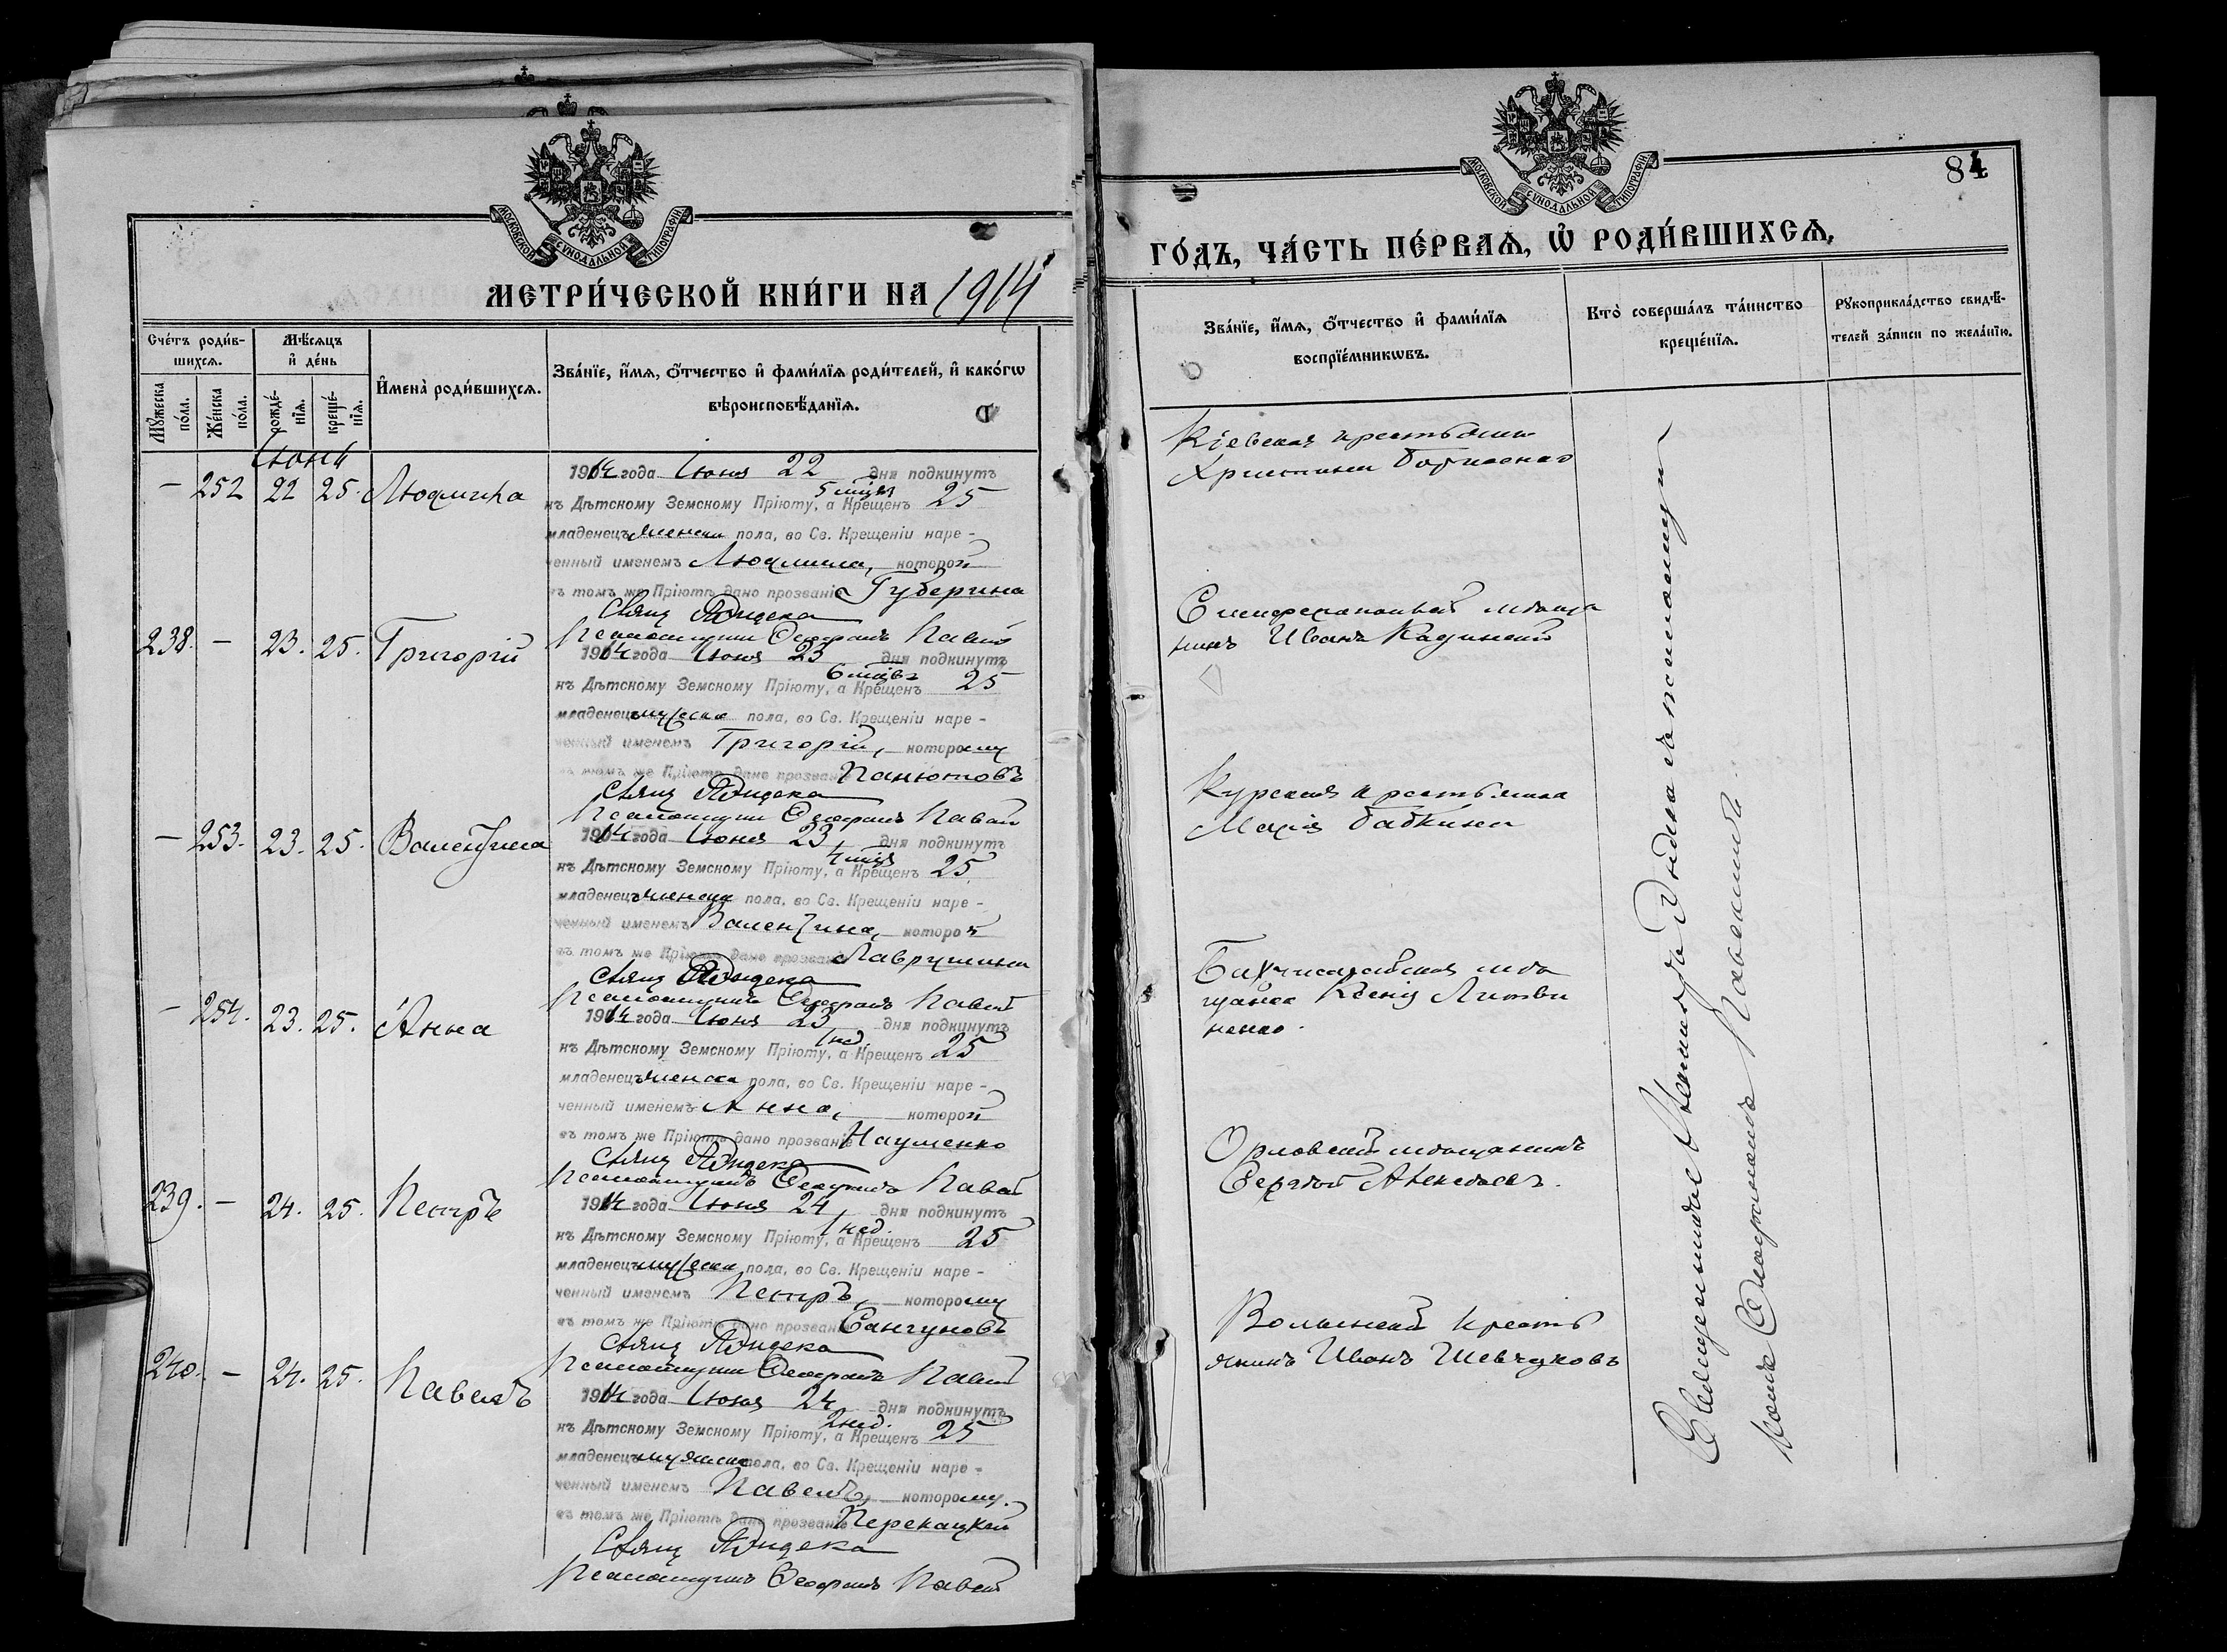 МОСКОВСКОЙ СУНОДАЛЬНОЙ ТИПОГРАФІИ
МЕТРИ́ЧЕСКОЙ КНИ́ГИ НА 1914
Сче́тъ роди́в-
шихся.
Мѣ́сяцъ
и҆ де́нь
И҆мена̀ роди́вшихся.
Зва́нїе, и҆́мя, ѻ҆́тчество и҆ фами́лїя роди́телей, и҆ како́гѡ
вѣроисповѣ́данїя.
Мꙋ́жеска
по́ла.
Же́нска
по́ла.
рожде́-
нїя.
креще́-
нїя.
Іюнь
— 252 22 25. Людмила
1914 года Іюня 22 дня подкинутъ
5 мцѣ
къ Дѣтскому Земскому Пріюту, а Крещенъ 25
младенецъ женска пола, во Св. Крещеніи наре-
ченный именемъ Людмила, которой
въ томъ же Пріютѣ дано прозваніе Губерина
Свящ
Псаломщикъ
238. — 23. 25. Григорій
1914 года Іюня 23 дня подкинутъ
6 мцѣв
къ Дѣтскому Земскому Пріюту, а Крещенъ 25
младенецъ мужеска пола, во Св. Крещеніи наре-
ченный именемъ Григорій, которому
въ томъ же Пріютѣ дано прозваніе Панютовъ
Свящ
Псаломщикъ
— 253. 23. 25. Валентина
1914 года Іюня 23 дня подкинутъ
4 мцѣ
къ Дѣтскому Земскому Пріюту, а Крещенъ 25
младенецъ женска пола, во Св. Крещеніи наре-
ченный именемъ Валентина, которой
въ томъ же Пріютѣ дано прозваніе Лаврушина
Свящ
Псаломщикъ
— 254. 23. 25. Анна
1914 года Іюня 23 дня подкинутъ
1 нед.
къ Дѣтскому Земскому Пріюту, а Крещенъ 25
младенецъ женска пола, во Св. Крещеніи наре-
ченный именемъ Анна, которой
въ томъ же Пріютѣ дано прозваніе Науменко
Свящ
Псаломщикъ
239. — 24. 25. Петръ
1914 года Іюня 24 дня подкинутъ
1 нед.
къ Дѣтскому Земскому Пріюту, а Крещенъ 25
младенецъ мужеска пола, во Св. Крещеніи наре-
ченный именемъ Петръ, которому
въ томъ же Пріютѣ дано прозваніе Санчуновъ
Свящ
Псаломщикъ
240. — 24. 25. Павелъ
1914 года Іюня 24 дня подкинутъ
2 нед.
къ Дѣтскому Земскому Пріюту, а Крещенъ 25
младенецъ мужеска пола, во Св. Крещеніи наре-
ченный именемъ Павелъ, которому
въ томъ же Пріютѣ дано прозваніе Перекацкій
Свящ
Псаломщикъ
МОСКОВСКОЙ СУНОДАЛЬНОЙ ТИПОГРАФІИ
84
ГО́ДЪ, ЧА́СТЬ ПЕ́РВАЯ, Ѡ҆ РОДИ́ВШИХСЯ,
Зва́нїе, и҆́мя, ѻ҆́тчество и҆ фами́лїя
воспрїе́мникѡвъ.
Кто̀ соверша́лъ та́инство
креще́нїя.
Рꙋкоприкла́дство свидѣ́-
телей за́писи по жела́нїю.
Кіевская крестьянка
Христина
Симферопольскій мѣща
нинъ Иванъ Кадинскій
Курская крестьянка
Марія Бабкина
Бахчисарайская мѣ
щанка Ксенія Литви
ненко.
Орловскій мѣщанинъ
Сергѣй Алексѣевъ.
Волынскій кресть
янинъ Иванъ Шевчуковъ
Священникъ